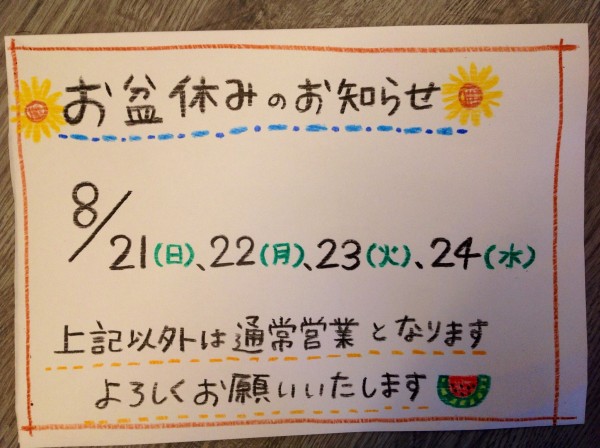 お盆休みのお知らせ
8/21(日)、22(月)、23(火)、24(水)
上記以外は通常営業となります
よろしくお願いいたします